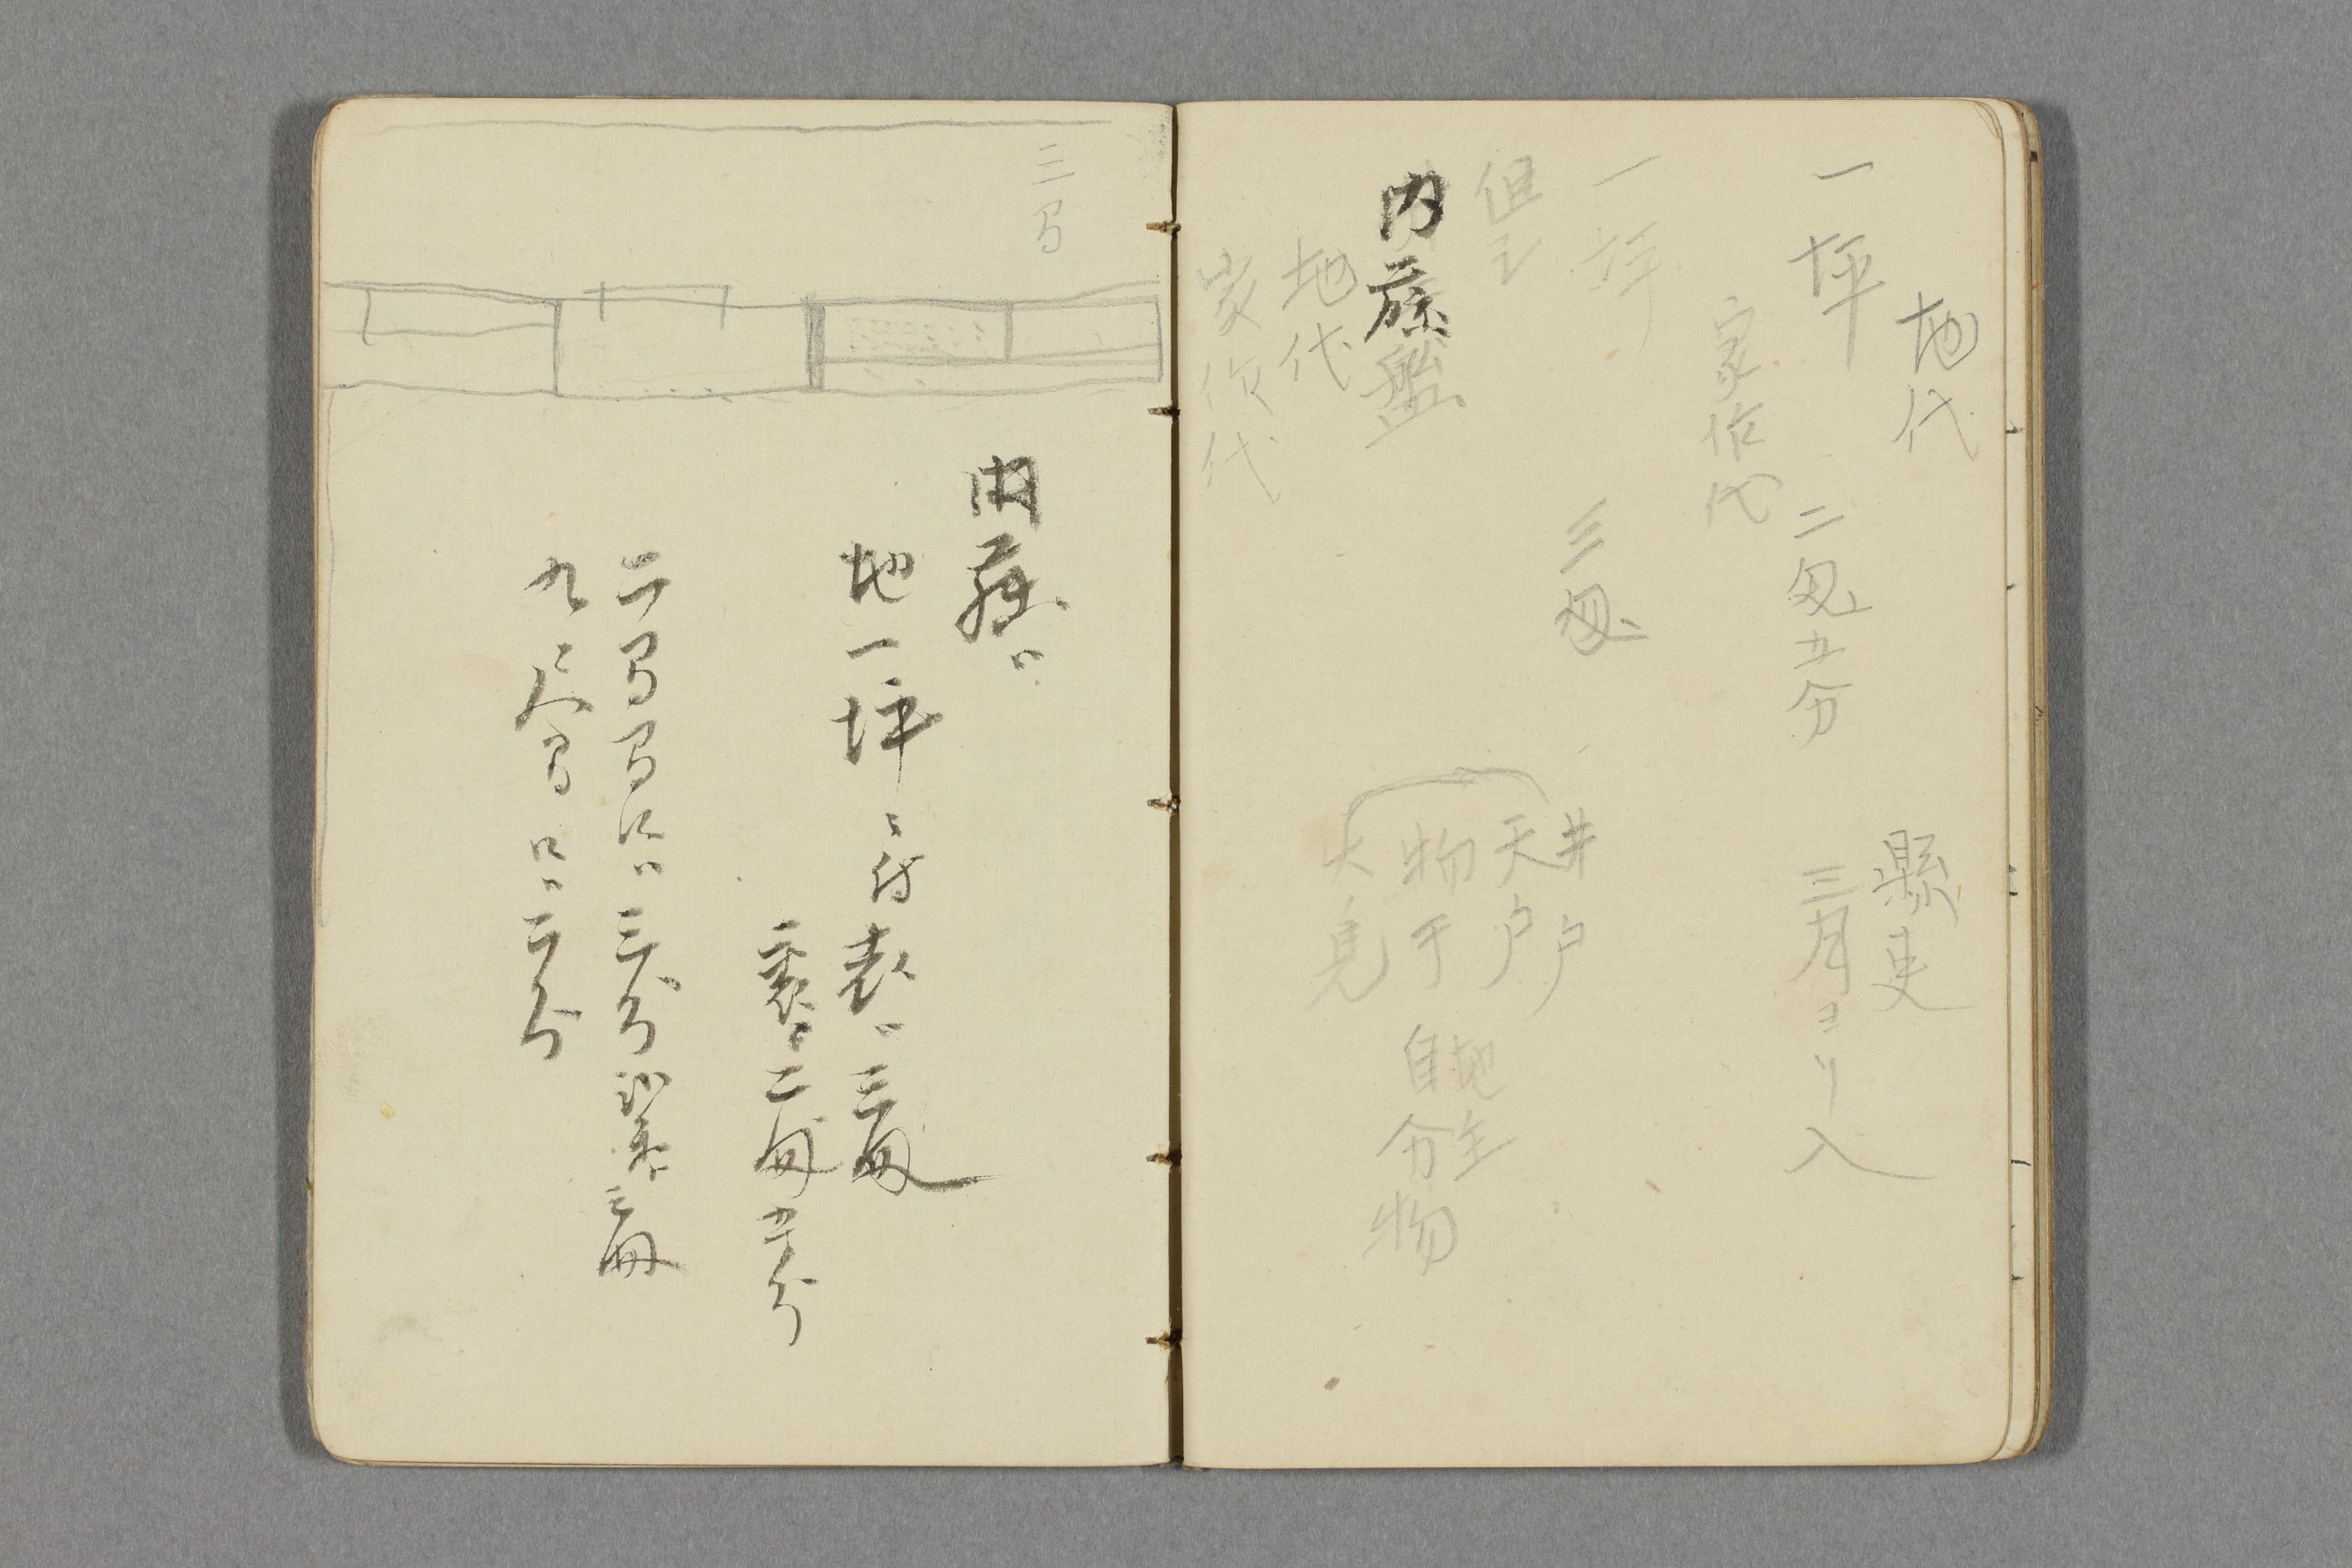 地代
一坪 二匁五分
家作代
一坪 三匁
但シ
内藤盤
地代
家作代
縣吏
三月ヨリ入
井戸
天戸
物干
火見
地主
自分物
三間
内藤ハ
地一坪ニ付表ハ三匁
裏ハ二匁五分
二間間口ハ三分
九尺間口ハ二分